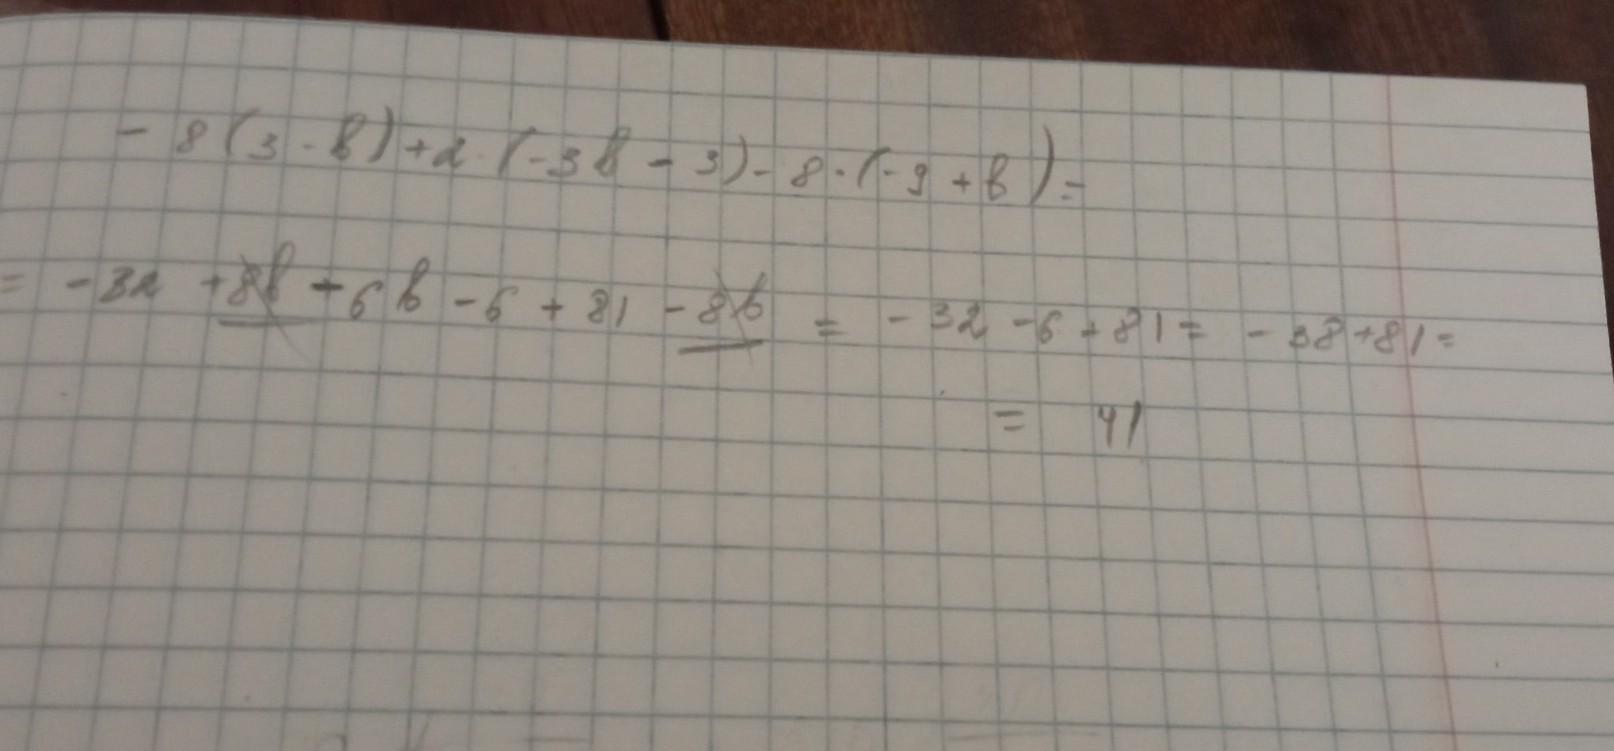 - 8(3-b)+2·(-3b-3)-8·(-9+b)=
= -32 +8b -6b -6 + 81 -8b = -32 -6 +81 = -38+81=
= 41